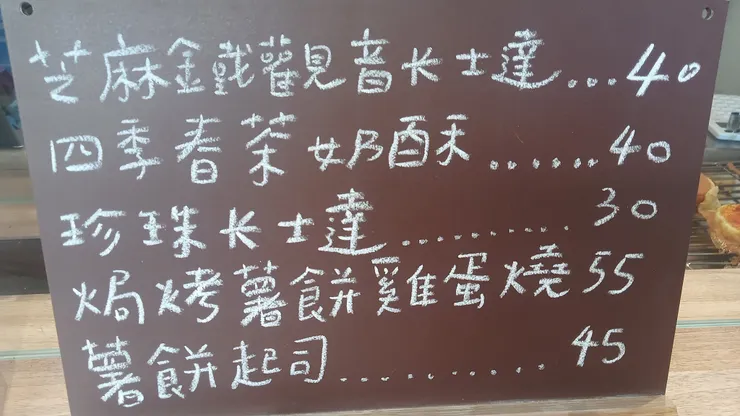 芝麻鐵觀音长士達...40
四季春茶奶酥......40
珍珠长士達..........30
焗烤薯餅雞蛋燒55
薯餅起司............45